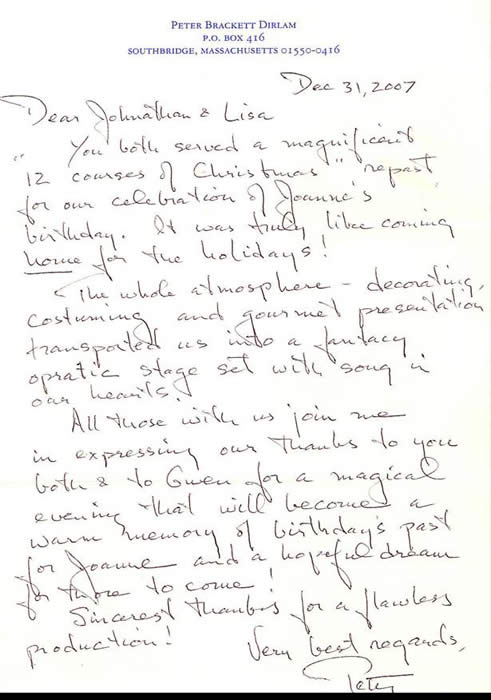 PETER BRACKETT DIRLAM
P.O. BOX 416
SOUTHBRIDGE, MASSACHUSETTS 01550-0416
Dec 31, 2007
Dear Johnathan & Lisa
You both served a magnificent
"12 courses of Christmas" repast
for our celebration of Joanne's
birthday. It was truly like coming
home for the holidays!
The whole atmosphere - decorating,
costuming and gourmet presentation
transported us into a fantacy
opratic stage set with song in
our hearts!
All those with us join me
in expressing our thanks to you
both & to Gwen for a magical
evening that will become a
warm memory of birthday's past
for Joanne and a hopeful dream
for those to come!
Sincerest thanks for a flawless
production!
Very best regards,
Peter